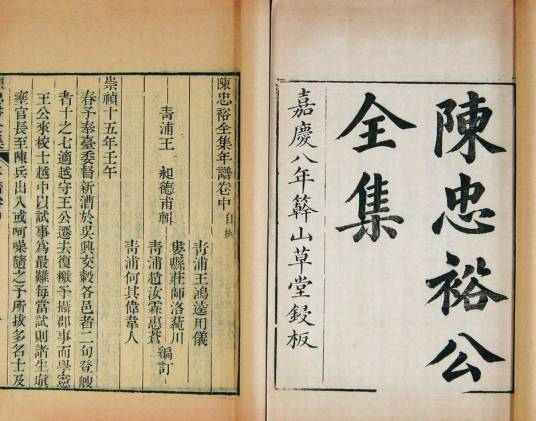 陳忠裕公
全集
嘉慶八年簳山草堂鋟板
陳忠裕全集年譜卷中 自撰
青浦王 昶德甫輯
青浦王鴻逵用儀
婁縣莊師洛蒓川
青浦趙汝霖惠蒼 編訂
青浦何其偉韋人
崇禎十五年壬午
春予奉臺委督新漕於吳興交穀各邑者二旬登艘
者十之七適越守王公遷去復檄予攝郡事而學憲
王公來校士越中以試事為最難每當試則諸生嗔
雍官長至陳兵出入或呵噪隨之予所拔多名士及